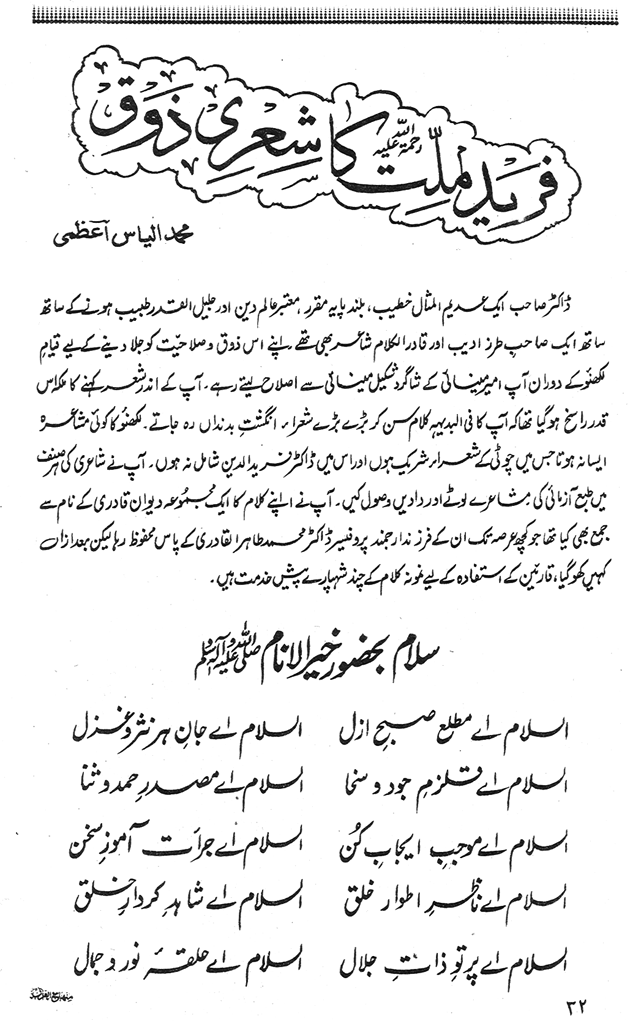 فریدِ ملّت رحمۃ اللہ علیہ کا شعری ذوق
محمد الیاس اعظمی
ڈاکٹر صاحب ایک عدیم المثال خطیب، بلند پایہ مقرر، معتبر عالم دین اور جلیل القدر طبیب ہونے کے ساتھ
ساتھ ایک صاحب طرز ادیب اور قادر الکلام شاعر بھی تھے۔ اپنے اس ذوق و صلاحیت کو جلا دینے کے لیے قیامِ
لکھنؤ کے دوران آپ امیر مینائی کے شاگرد شکیل مینائی سے اصلاح لیتے رہے۔ آپ کے اندر شعر کہنے کا ملکہ اس
قدر راسخ ہو گیا تھا کہ آپ کا فی البدیہہ کلام سن کر بڑے بڑے شعراء انگشت بدنداں رہ جاتے۔ لکھنؤ کا کوئی مشاعرہ
ایسا نہ ہوتا جس میں چوٹی کے شعراء شریک ہوں اور اس میں ڈاکٹر فرید الدین شامل نہ ہوں۔ آپ نے شاعری کی ہر صنف
میں طبع آزمائی کی مشاعرے لوٹے اور دادیں وصول کیں۔ آپ نے اپنے کلام کا ایک مجموعہ دیوان قادری کے نام سے
جمع بھی کیا تھا جو کچھ عرصہ تک ان کے فرزند ارجمند پروفیسر ڈاکٹر محمد طاہر القادری کے پاس محفوظ رہا لیکن بعد ازاں
کہیں کھو گیا، قارئین کے استفادہ کے لیے نمونہ کلام کے چند شہپارے پیش خدمت ہیں۔
سلام بحضور خیر الانام صلی اللہ علیہ وآلہ وسلم
السلام اے مطلع صبحِ ازل السلام اے جانِ ہر نثر و غزل
السلام اے قلزمِ جود و سخا السلام اے مصدرِ حمد و ثنا
السلام اے موجبِ ایجابِ کُن السلام اے جرأت آموزِ سخن
السلام اے ناظرِ اطوار خلق السلام اے شاہدِ کردارِ خلق
السلام اے پرتوِ ذاتِ جلال السلام اے حلقۂ نور و جمال
۳۲